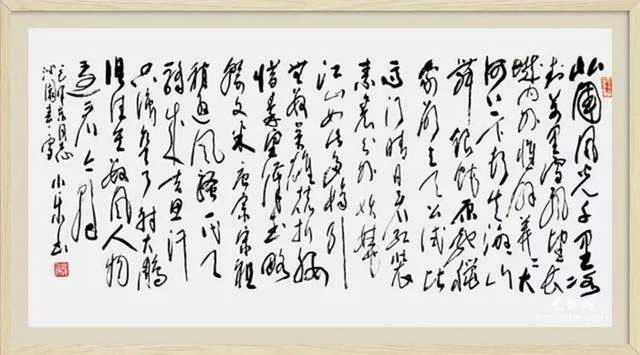 北国风光千里冰
封万里雪飘望长
城内外惟余莽莽大
河上下顿失滔滔山
舞银蛇原驰蜡
象欲与天公试比
高须晴日看红装
素裹分外妖娆
江山如此多娇引
无数英雄竞折腰
惜秦皇汉武略
输文采唐宗宋祖
稍逊风骚一代天
骄成吉思汗
只识弯弓射大雕
俱往矣数风流人物
还看今朝
毛泽东同志
沁园春雪